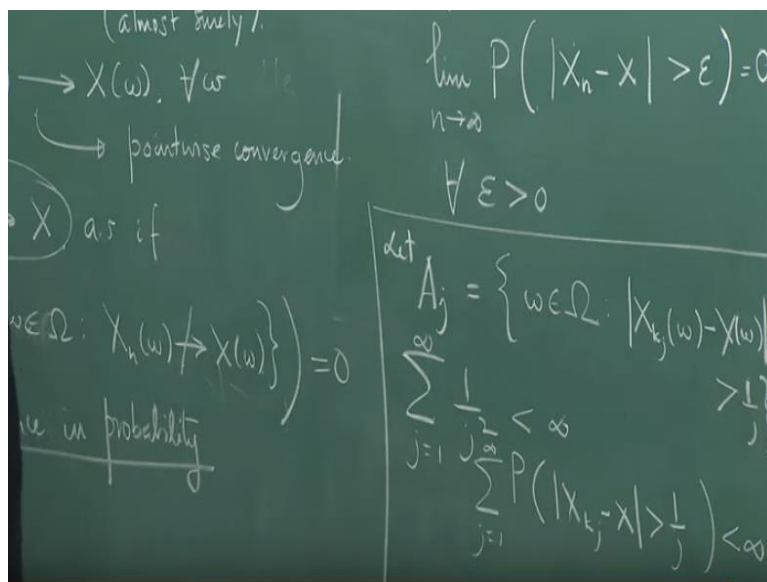 (almost surely).
→ X(ω), ∀ω
→ pointwise convergence.
X as if
ω∈Ω: Xₙ(ω)↛X(ω)})=0
in probability
lim P(|Xₙ-X|>ε)=0
n→∞
∀ ε>0
Let
Aⱼ = {ω∈Ω: |X_{kⱼ}(ω)-X(ω)|
>1/j}
∑_{j=1}^{∞} 1/j² < ∞
∑_{j=1}^{∞} P(|X_{kⱼ}-X|>1/j)<∞